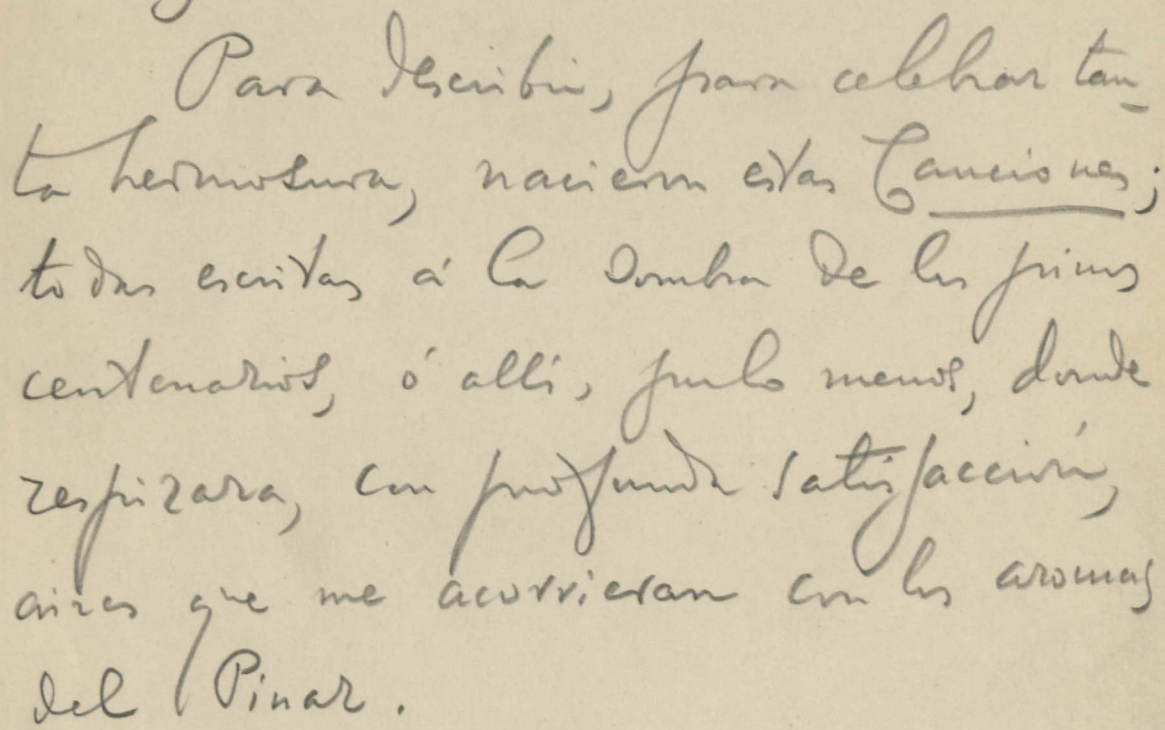 Para describir, para celebrar tan-
ta hermosura, nacieron estas Canciones;
todas escritas á la sombra de los pinos
centenarios, ó allí, por lo menos, donde
respirara, con profunda satisfacción,
aires que me acorrieran con los aromas
del Pinar.